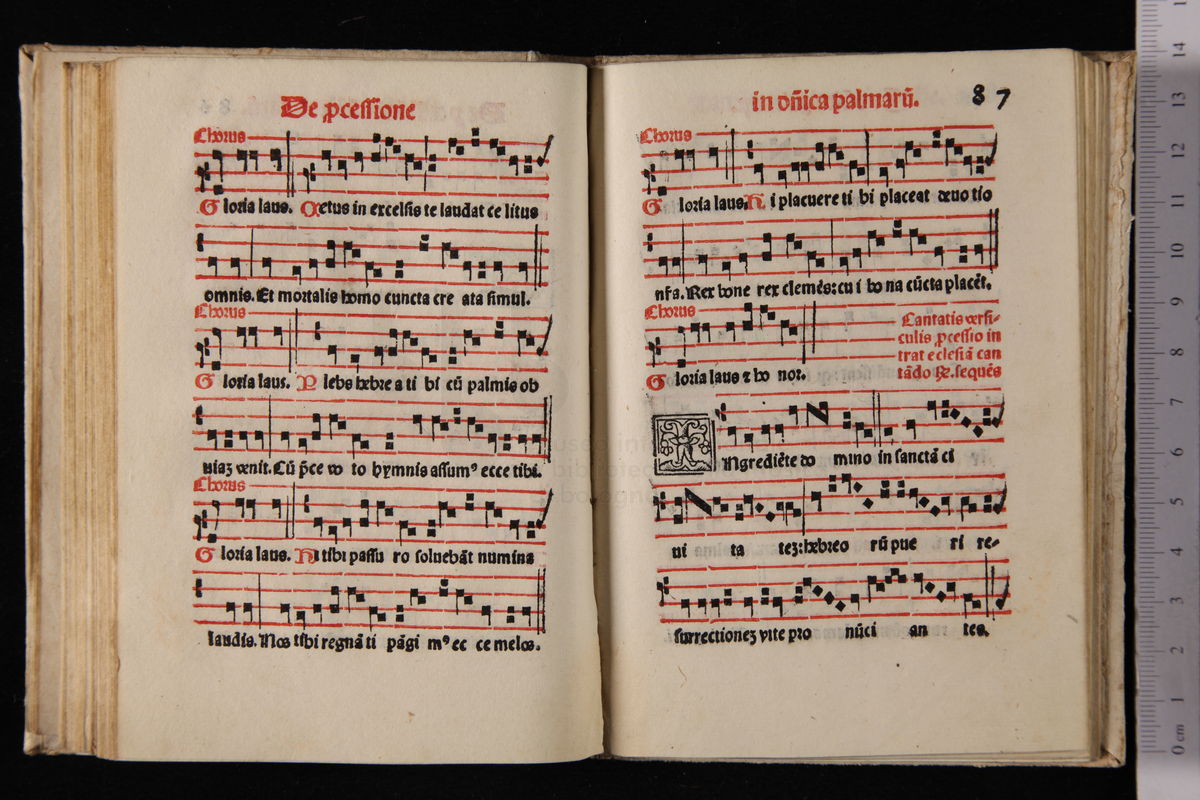 De ꝓcessione
Chorus
Gloria laus. Cetus in excelsis te laudat ce litus
omnis. Et mortalis homo cuncta cre ata simul.
Chorus
Gloria laus. Plebs hebre a ti bi cū palmis ob
uiaʒ venit. Cū p̄ce vo to hymnis assumꝰ ecce tibi.
Chorus
Gloria laus. Hi tibi passu ro soluebāt numina
laudis. Nos tibi regnā ti pāgi mꝰ ec ce melos.
in dñica palmarū.
87
Chorus
Gloria laus. Hi placuere ti bi placeat deuo tio
nr̄a. Rex bone rex clemēs: cu i bo na cūcta placēt.
Chorus
Gloria laus ⁊ ho nor.
Cantatis versi-
culis ꝓcessio in
trat ecclesiā can
tādo ℞. sequēs
INgrediēte do mino in sanctā ci
ui ta teʒ: hebreo rū pue ri re-
surrectioneʒ vite pro nūci an tes.
0 cm 1 2 3 4 5 6 7 8 9 10 11 12 13 14